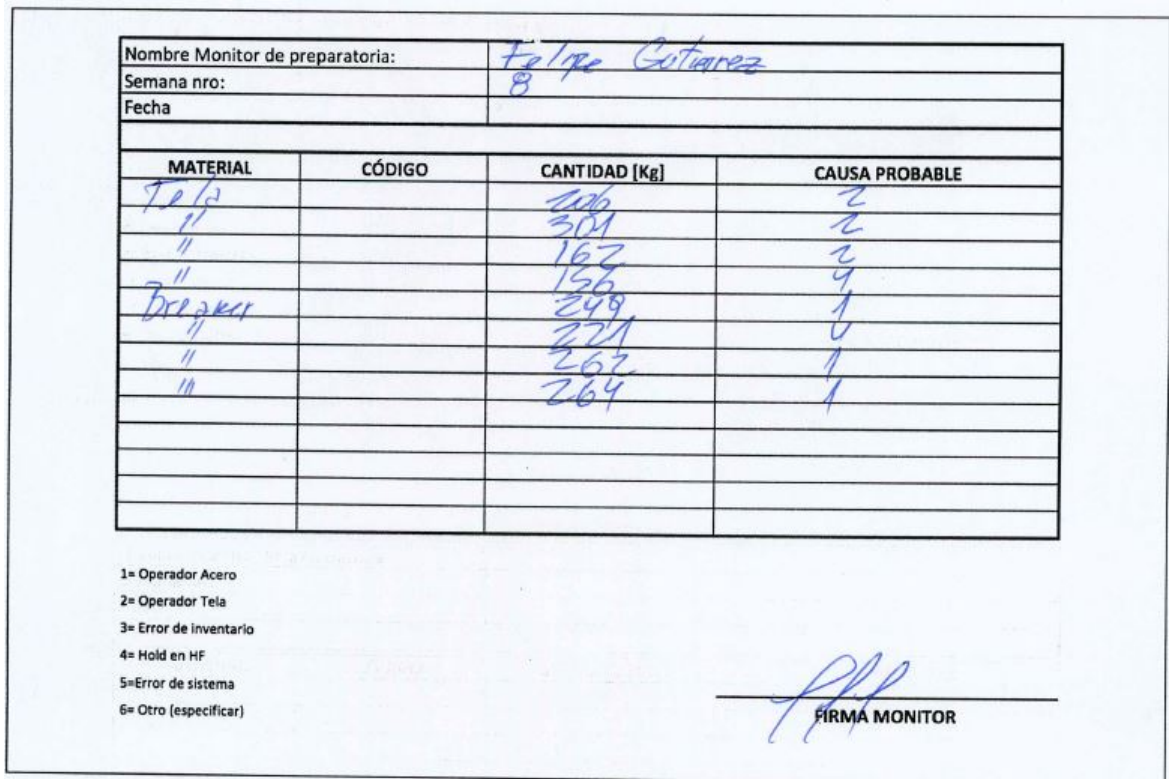 Nombre Monitor de preparatoria: Felipe Gutierrez
Semana nro: 8
Fecha
MATERIAL CÓDIGO CANTIDAD [Kg] CAUSA PROBABLE
Tela 206 2
" 301 2
" 162 2
" 156 4
Breaker 249 1
" 221
" 262 1
" 264 1
1= Operador Acero
2= Operador Tela
3= Error de inventario
4= Hold en HF
5=Error de sistema
6= Otro (especificar)
FIRMA MONITOR